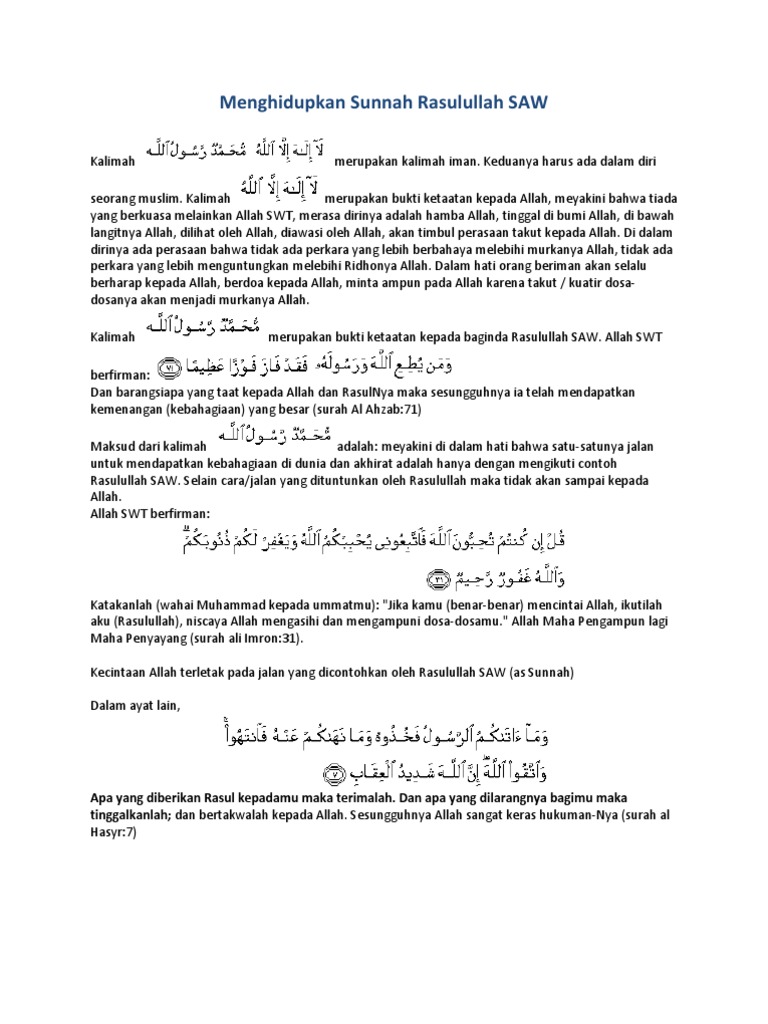 Menghidupkan Sunnah Rasulullah SAW
Kalimah لَآ إِلَـٰهَ إِلَّا ٱللَّهُ مُّحَمَّدٌ رَّسُولُ ٱللَّهِ merupakan kalimah iman. Keduanya harus ada dalam diri
seorang muslim. Kalimah لَآ إِلَـٰهَ إِلَّا ٱللَّهُ merupakan bukti ketaatan kepada Allah, meyakini bahwa tiada
yang berkuasa melainkan Allah SWT, merasa dirinya adalah hamba Allah, tinggal di bumi Allah, di bawah
langitnya Allah, dilihat oleh Allah, diawasi oleh Allah, akan timbul perasaan takut kepada Allah. Di dalam
dirinya ada perasaan bahwa tidak ada perkara yang lebih berbahaya melebihi murkanya Allah, tidak ada
perkara yang lebih menguntungkan melebihi Ridhonya Allah. Dalam hati orang beriman akan selalu
berharap kepada Allah, berdoa kepada Allah, minta ampun pada Allah karena takut / kuatir dosa-
dosanya akan menjadi murkanya Allah.
Kalimah مُّحَمَّدٌ رَّسُولُ ٱللَّهِ merupakan bukti ketaatan kepada baginda Rasulullah SAW. Allah SWT
berfirman: وَمَن يُطِعِ ٱللَّهَ وَرَسُولَهُۥ فَقَدْ فَازَ فَوْزًا عَظِيمًا ﴿٧١﴾
Dan barangsiapa yang taat kepada Allah dan RasulNya maka sesungguhnya ia telah mendapatkan
kemenangan (kebahagiaan) yang besar (surah Al Ahzab:71)
Maksud dari kalimah مُّحَمَّدٌ رَّسُولُ ٱللَّهِ adalah: meyakini di dalam hati bahwa satu-satunya jalan
untuk mendapatkan kebahagiaan di dunia dan akhirat adalah hanya dengan mengikuti contoh
Rasulullah SAW. Selain cara/jalan yang dituntunkan oleh Rasulullah maka tidak akan sampai kepada
Allah.
Allah SWT berfirman:
قُلْ إِن كُنتُمْ تُحِبُّونَ ٱللَّهَ فَٱتَّبِعُونِى يُحْبِبْكُمُ ٱللَّهُ وَيَغْفِرْ لَكُمْ ذُنُوبَكُمْ ۗ
وَٱللَّهُ غَفُورٌ رَّحِيمٌ ﴿٣١﴾
Katakanlah (wahai Muhammad kepada ummatmu): "Jika kamu (benar-benar) mencintai Allah, ikutilah
aku (Rasulullah), niscaya Allah mengasihi dan mengampuni dosa-dosamu." Allah Maha Pengampun lagi
Maha Penyayang (surah ali Imron:31).
Kecintaan Allah terletak pada jalan yang dicontohkan oleh Rasulullah SAW (as Sunnah)
Dalam ayat lain,
وَمَآ ءَاتَىٰكُمُ ٱلرَّسُولُ فَخُذُوهُ وَمَا نَهَىٰكُمْ عَنْهُ فَٱنتَهُوا۟ ۚ
وَٱتَّقُوا۟ ٱللَّهَ ۖ إِنَّ ٱللَّهَ شَدِيدُ ٱلْعِقَابِ ﴿٧﴾
Apa yang diberikan Rasul kepadamu maka terimalah. Dan apa yang dilarangnya bagimu maka
tinggalkanlah; dan bertakwalah kepada Allah. Sesungguhnya Allah sangat keras hukuman-Nya (surah al
Hasyr:7)